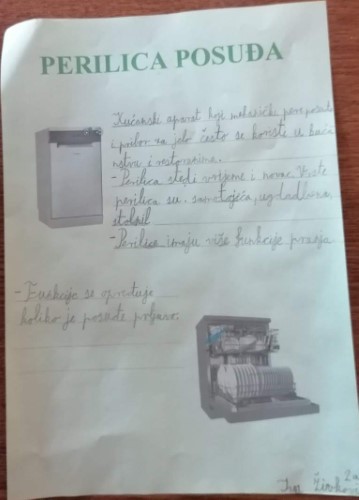 PERILICA POSUĐA
Kućanski aparat koji mehanički pere posuđe
i pribor za jelo često se koriste u kuća
nstvu i restoranima.
- Perilica štedi vrijeme i novac. Vrste
perilica su: samostojeća, ugradbena,
stolna
- Perilice imaju više funkcije pranja
- Funkcije se
koliko je posuđe prljavo.
2.a